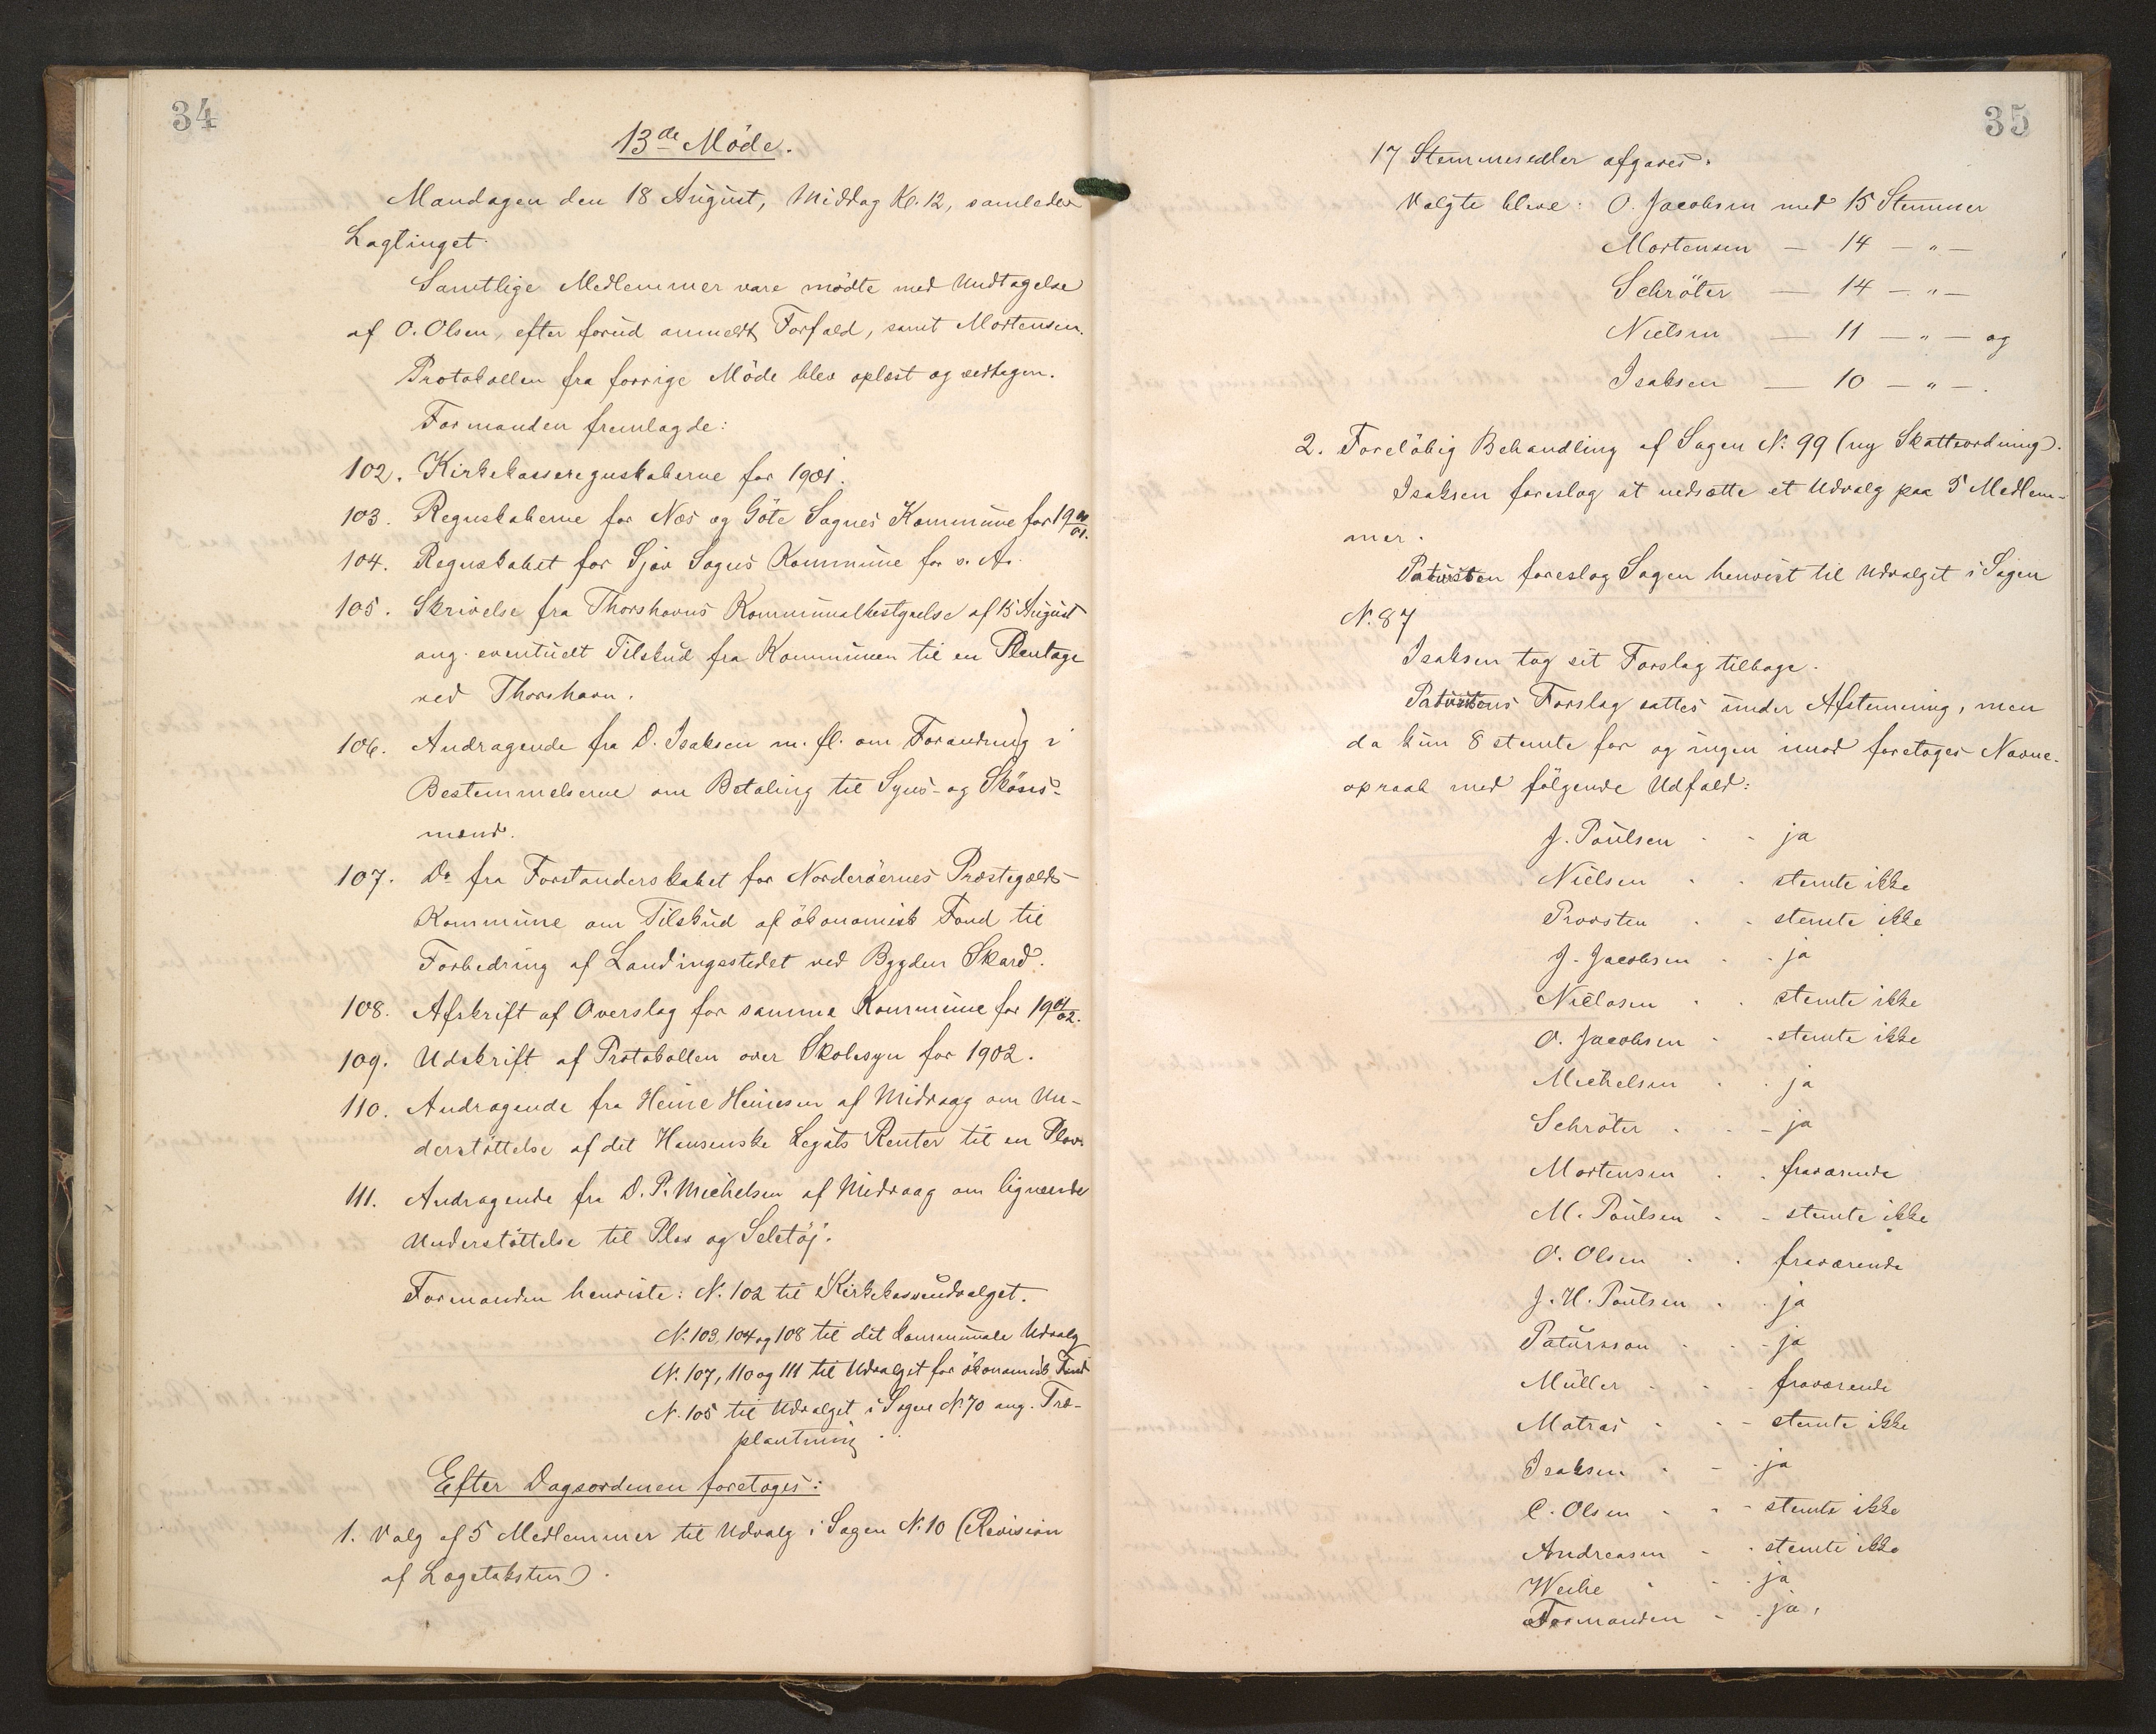 34
13de Möde.
Mandagen den 18 August, Middag Kl. 12, samledes
Lagtinget.
Samtlige Medlemmer vare mödte med Undtagelse
af O. Olsen, efter forud anmeldt Forfald, samt Mortensen.
Protokollen fra forrige Möde blev oplæst og vedtagen.
Formanden fremlagde:
102. Kirkekasseregnskaberne for 1901.
103. Regnskaberne for Næs og Göte Sognes Kommune for 19 00/01.
104. Regnskabet for Sjov Sogns Kommune for s. A.
105. Skrivelse fra Thorshavns Kommunalbestyrelse af 15 August
ang. eventuelt Tilskud fra Kommunen til en Plantage
ved Thorshavn.
106. Andragende fra D. Isaksen m. fl. om Forandring i
Bestemmelserne om Betaling til Syns- og Sköns-
mænd.
107. Do fra Forstanderskabet for Norderöernes Præstegjelds
Kommune om Tilskud af ökonomisk Fond til
Forbedring af Landingsstedet ved Bygden Skard.
108. Afskrift af Overslag for samme Kommune for 19 01/02.
109. Udskrift af Protokollen over Skolesyn for 1902.
110. Andragende fra Heine Heinesen af Midvaag om Un-
derstöttelse af det Hansenske Legats Renter til en Plov.
111. Andragende fra D. P. Michelsen af Midvaag om lignende
Understöttelse til Plov og Seletöj.
Formanden henviste: N. 102 til Kirkekasseudvalget.
N. 103, 104 og 108 til det kommunale Udvalg
N. 107, 110 og 111 til Udvalget for ökonomisk Fond
N. 105 til Udvalget i Sagen N. 70 ang. Træ-
plantning
Efter Dagsordenen foretoges:
1. Valg af 5 Medlemmer til Udvalg i Sagen N. 10 (Revision
af Lægetaksten).
35
17 Stemmesedler afgaves.
Valgte bleve: O. Jacobsen med 15 Stemmer
Mortensen — 14 — " —
Schröter — 14 — " —
Nielsen — 11 — " — og
Isaksen — 10 — " —.
2. Foreløbig Behandling af Sagen N. 99 (ny Skatteordning).
Isaksen foreslog at nedsætte et Udvalg paa 5 Medlem-
mer.
foreslog Sagen henvist til Udvalget i Sagen
N. 87
Isaksen tog sit Forslag tilbage.
Forslag sattes under Afstemning, men
da kun 8 stemte for og ingen imod foretoges Navne-
opraab med fölgende Udfald:
J. Poulsen - - ja
Nielsen - - stemte ikke
Provsten - - stemte ikke
J. Jacobsen - - ja
Niclasen - - stemte ikke
O. Jacobsen - - stemte ikke
Michelsen - - ja
Schröter - - - ja
Mortensen - - fraværende
M. Poulsen - - stemte ikke
O. Olsen - - fraværende
J. H. Poulsen - - ja
Patursson - - - ja
Müller - - - fraværende
Matras - - - stemte ikke
Isaksen - - - ja
C. Olsen - - - stemte ikke
Andreasen - - stemte ikke
Weihe - - - ja
Formanden - - ja.